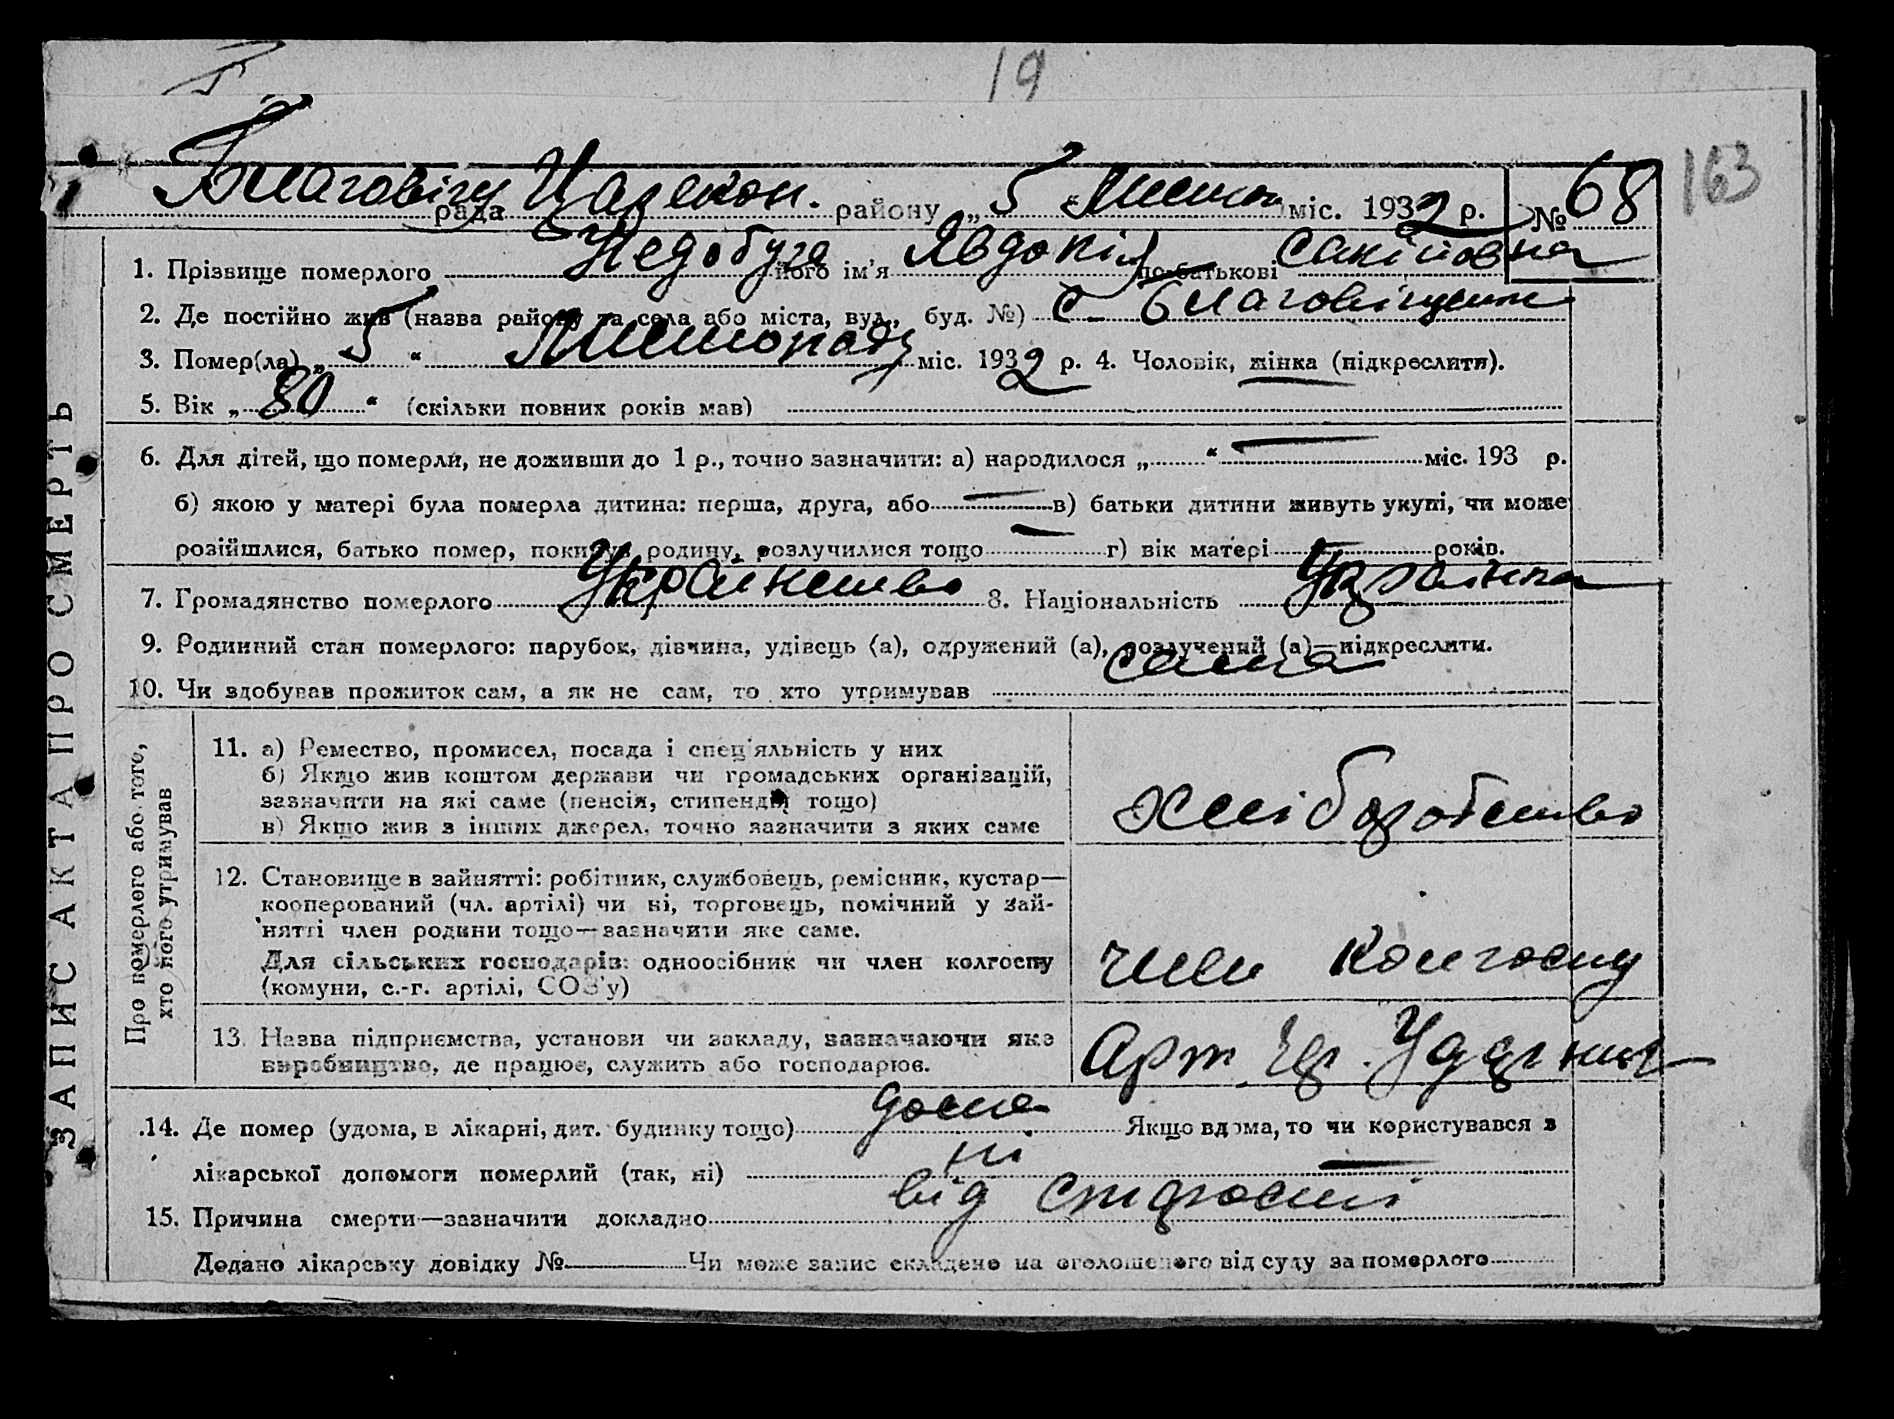 19
163
Благовіщ рада Царекон. району „5“ Листоп міс. 1932 р. № 68
1. Прізвище померлого Недобуга його ім'я Явдокія по-батькові
2. Де постійно жив (назва району та села або міста, вул., буд. №) с. Благовіщення
3. Помер(ла) „5“ Листопаду міс. 1932 р. 4. Чоловік, жінка (підкреслити).
5. Вік „80“ (скільки повних років мав)
6. Для дітей, що померли, не доживши до 1 р., точно зазначити: а) народилося „ “ — міс. 193 р.
б) якою у матері була померла дитина: перша, друга, або — в) батьки дитини живуть укупі, чи може
розійшлися, батько помер, покинув родину, розлучилися тощо — г) вік матері років.
7. Громадянство померлого Українство 8. Національність Українка
9. Родинний стан померлого: парубок, дівчина, удівець (а), одружений (а), розлучений (а)—підкреслити.
10. Чи здобував прожиток сам, а як не сам, то хто утримував сама
ЗАПИС АКТА ПРО СМЕРТЬ
Про померлого або того,
хто його утримував
11. а) Ремество, промисел, посада і спец'яльність у них
б) Якщо жив коштом держави чи громадських організацій,
зазначити на які саме (пенсія, стипендія тощо)
в) Якщо жив з інших джерел, точно зазначити з яких саме
хліборобство
12. Становище в зайнятті: робітник, службовець, ремісник, кустар—
кооперований (чл. артілі) чи ні, торговець, помічний у зай-
нятті член родини тощо—зазначити яке саме.
Для сільських господарів: одноосібник чи член колгоспу
(комуни, с.-г. артілі, СОЗ'у)
член колгоспу
13. Назва підприємства, установи чи закладу, зазначаючи яке
виробництво, де працює, служить або господарює.
Арт. Ударник
14. Де помер (удома, в лікарні, дит. будинку тощо) дома Якщо вдома, то чи користувався з
лікарської допомоги померлий (так, ні) ні —
15. Причина смерти—зазначити докладно від старости
Додано лікарську довідку № Чи може запис складено на оголошеного від суду за померлого